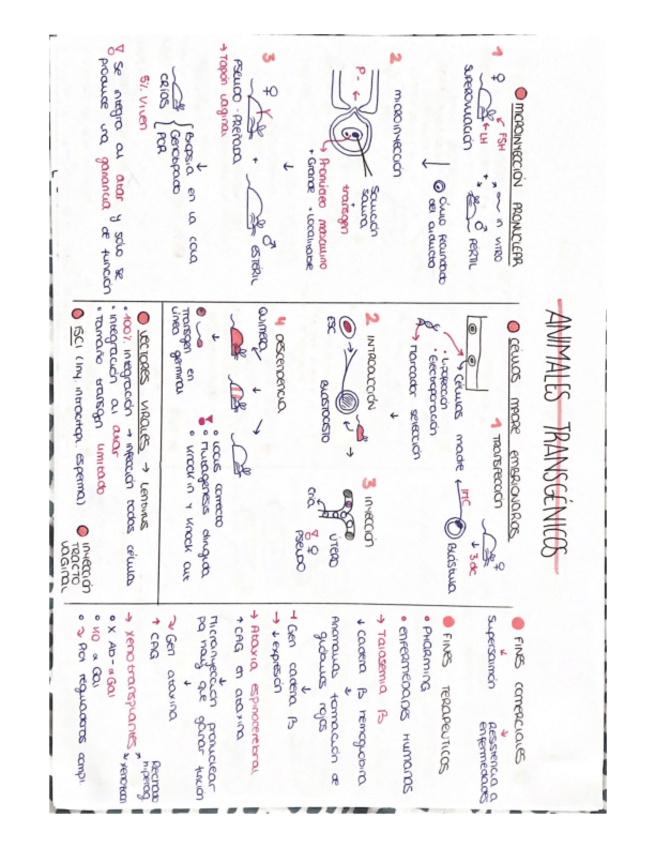 ANIMALES TRANSGÉNICOS
MICROINYECCIÓN PRONUCLEAR
1 ♀ FSH
LH
SUPEROVULACIÓN
+ in vitro
♂ FÉRTIL
Óvulo fecundado
del oviducto
2 MICROINYECCIÓN
P-
Solución
salina
+
transgen
Pronúcleo masculino
+ Grande + localizable
3 ♀ + ♂
PSEUDO-PREÑADA
ESTÉRIL
→ Tapón vaginal
CRÍAS
Biopsia en la cola
Genotipado
PCR
5% viven
Se integra al azar y sólo se
produce una ganancia de función
CÉLULAS MADRE EMBRIONARIAS
1 TRANSFECCIÓN
Células madre
MCI
♀
3 dC
Blástula
• Lipofección
• Electroporación
→ Marcador selección
2 INTRODUCCIÓN
ESC
BLASTOCISTO
3 INYECCIÓN
CRÍA
ÚTERO
♀
PSEUDO
4 DESCENDENCIA
QUIMERA
Transgen en
línea germinal
• Locus correcto
• Mutagénesis dirigida
• Knock in y knock out
VECTORES VIRALES → Lentivirus
• 100% integración → infección todas células
• Integración al azar
• Tamaño transgen limitado
ISCI (Iny. intracitop. esperma)
INYECCIÓN
TRACTO
VAGINAL
FINES COMERCIALES
Supersalmón
Resistencia a
enfermedades
FINES TERAPÉUTICOS
• PHARMING
• ENFERMEDADES HUMANAS
→ Talasemia β
↓ cadena β hemoglobina
Anomalías formación de
glóbulos rojos
→ Gen cadena β
→ ↓ expresión
→ Ataxia espinocerebelar
↑ CAG en ataxina
Microinyección pronuclear
pq hay que ganar función
Gen ataxina
↑ CAG
→ Xenotransplantes
Rechazo
hiperag
• X Ab - αGal
• KO α Gal
• Prot reguladoras compl.